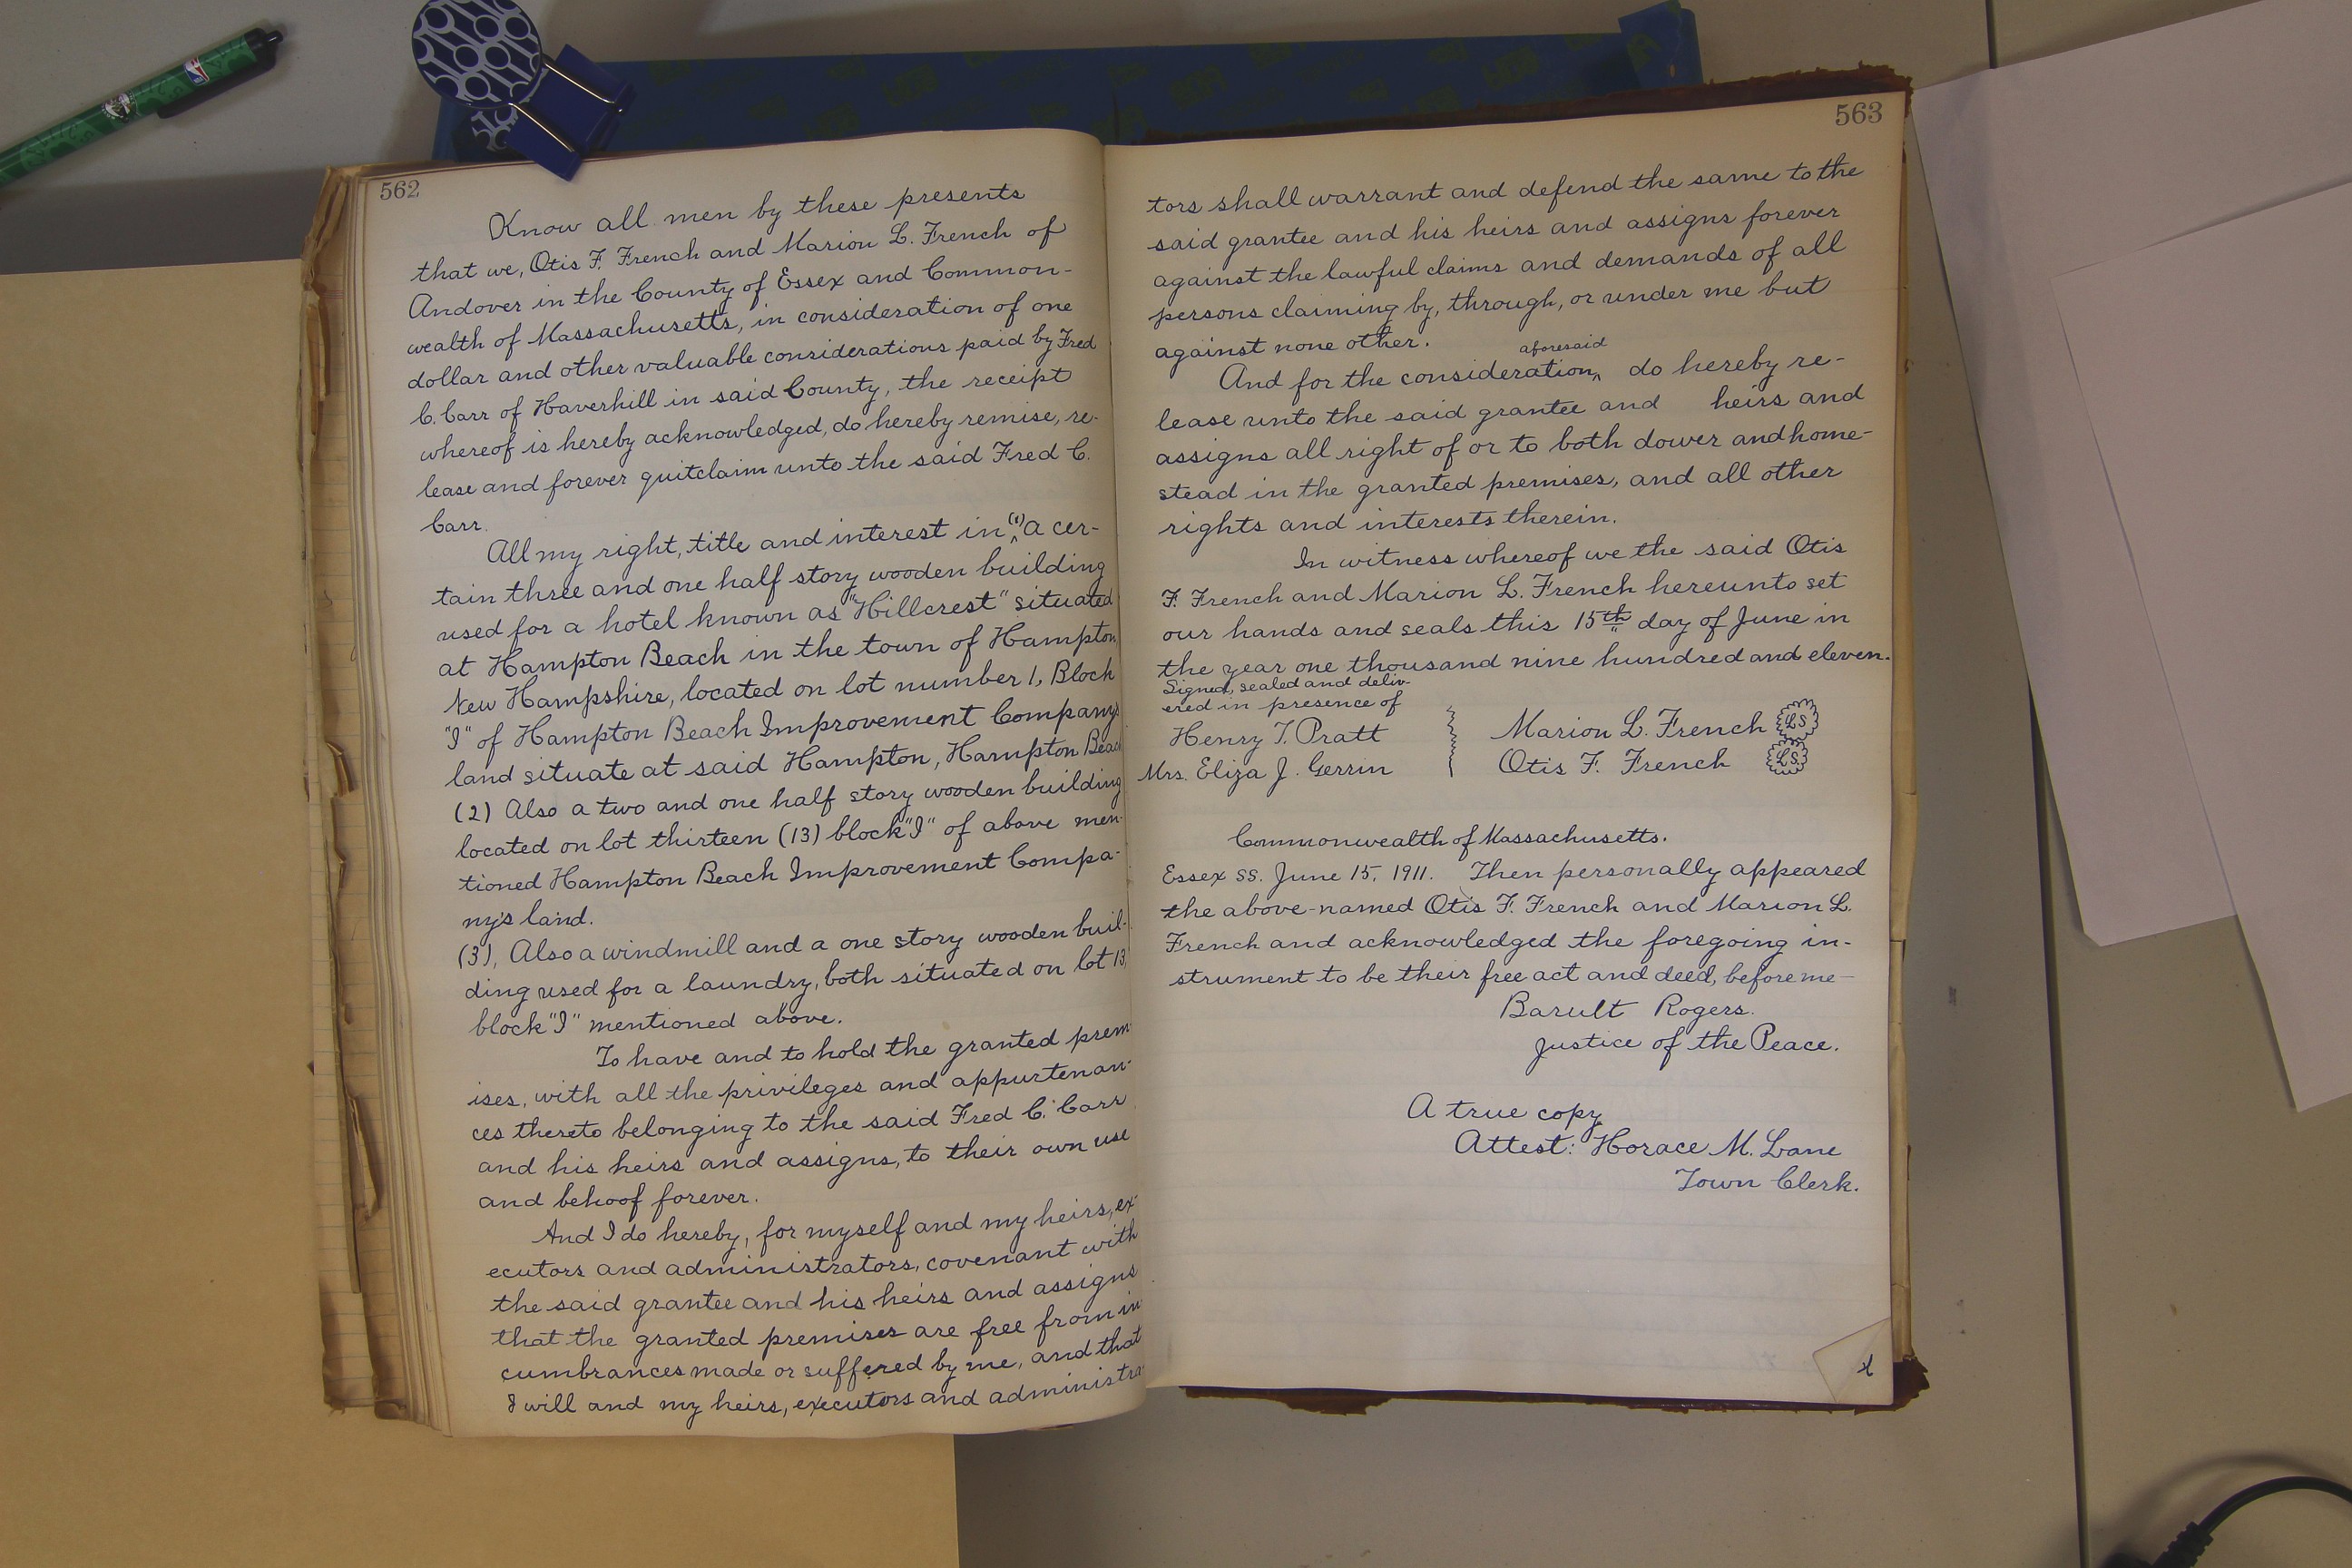 562
Know all men by these presents
that we, Otis F. French and Marion L. French of
Andover in the County of Essex and Common-
wealth of Massachusetts, in consideration of one
dollar and other valuable considerations paid by Fred
C. Carr of Haverhill in said County, the receipt
whereof is hereby acknowledged, do hereby remise, re-
lease and forever quitclaim unto the said Fred C.
Carr.
All my right, title and interest in (1) a cer-
tain three and one half story wooden building
used for a hotel known as "Hillcrest" situated
at Hampton Beach in the town of Hampton,
New Hampshire, located on lot number 1, Block
"I" of Hampton Beach Improvement Company's
land situate at said Hampton, Hampton Beach
(2) Also a two and one half story wooden building
located on lot thirteen (13) block "I" of above men-
tioned Hampton Beach Improvement Compa-
ny's land.
(3), Also a windmill and a one story wooden buil-
ding used for a laundry, both situated on lot 13,
block "I" mentioned above.
To have and to hold the granted prem-
ises, with all the privileges and appurtenan-
ces thereto belonging to the said Fred C. Carr
and his heirs and assigns, to their own use
and behoof forever.
And I do hereby, for myself and my heirs, ex-
ecutors and administrators, covenant with
the said grantee and his heirs and assigns
that the granted premises are free from in-
cumbrances made or suffered by me, and that
I will and my heirs, executors and administra-
563
tors shall warrant and defend the same to the
said grantee and his heirs and assigns forever
against the lawful claims and demands of all
persons claiming by, through, or under me but
against none other.
aforesaid
And for the consideration‸ do hereby re-
lease unto the said grantee and heirs and
assigns all right of or to both dower and home-
stead in the granted premises, and all other
rights and interests therein.
In witness whereof we the said Otis
F. French and Marion L. French hereunto set
our hands and seals this 15th day of June in
the year one thousand nine hundred and eleven.
Signed, sealed and deliv-
ered in presence of
Henry T. Pratt Marion L. French L.S.
Mrs. Eliza J. Gerrin Otis F. French L.S.
Commonwealth of Massachusetts.
Essex ss. June 15, 1911. Then personally appeared
the above-named Otis F. French and Marion L.
French and acknowledged the foregoing in-
strument to be their free act and deed, before me—
Barult Rogers.
Justice of the Peace.
A true copy
Attest: Horace M. Lane
Town Clerk.